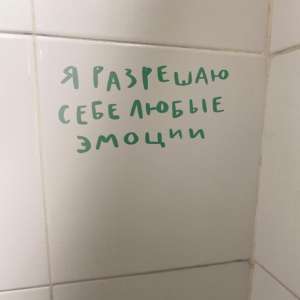 Я РАЗРЕШАЮ
СЕБЕ ЛЮБЫЕ
ЭМОЦИИ